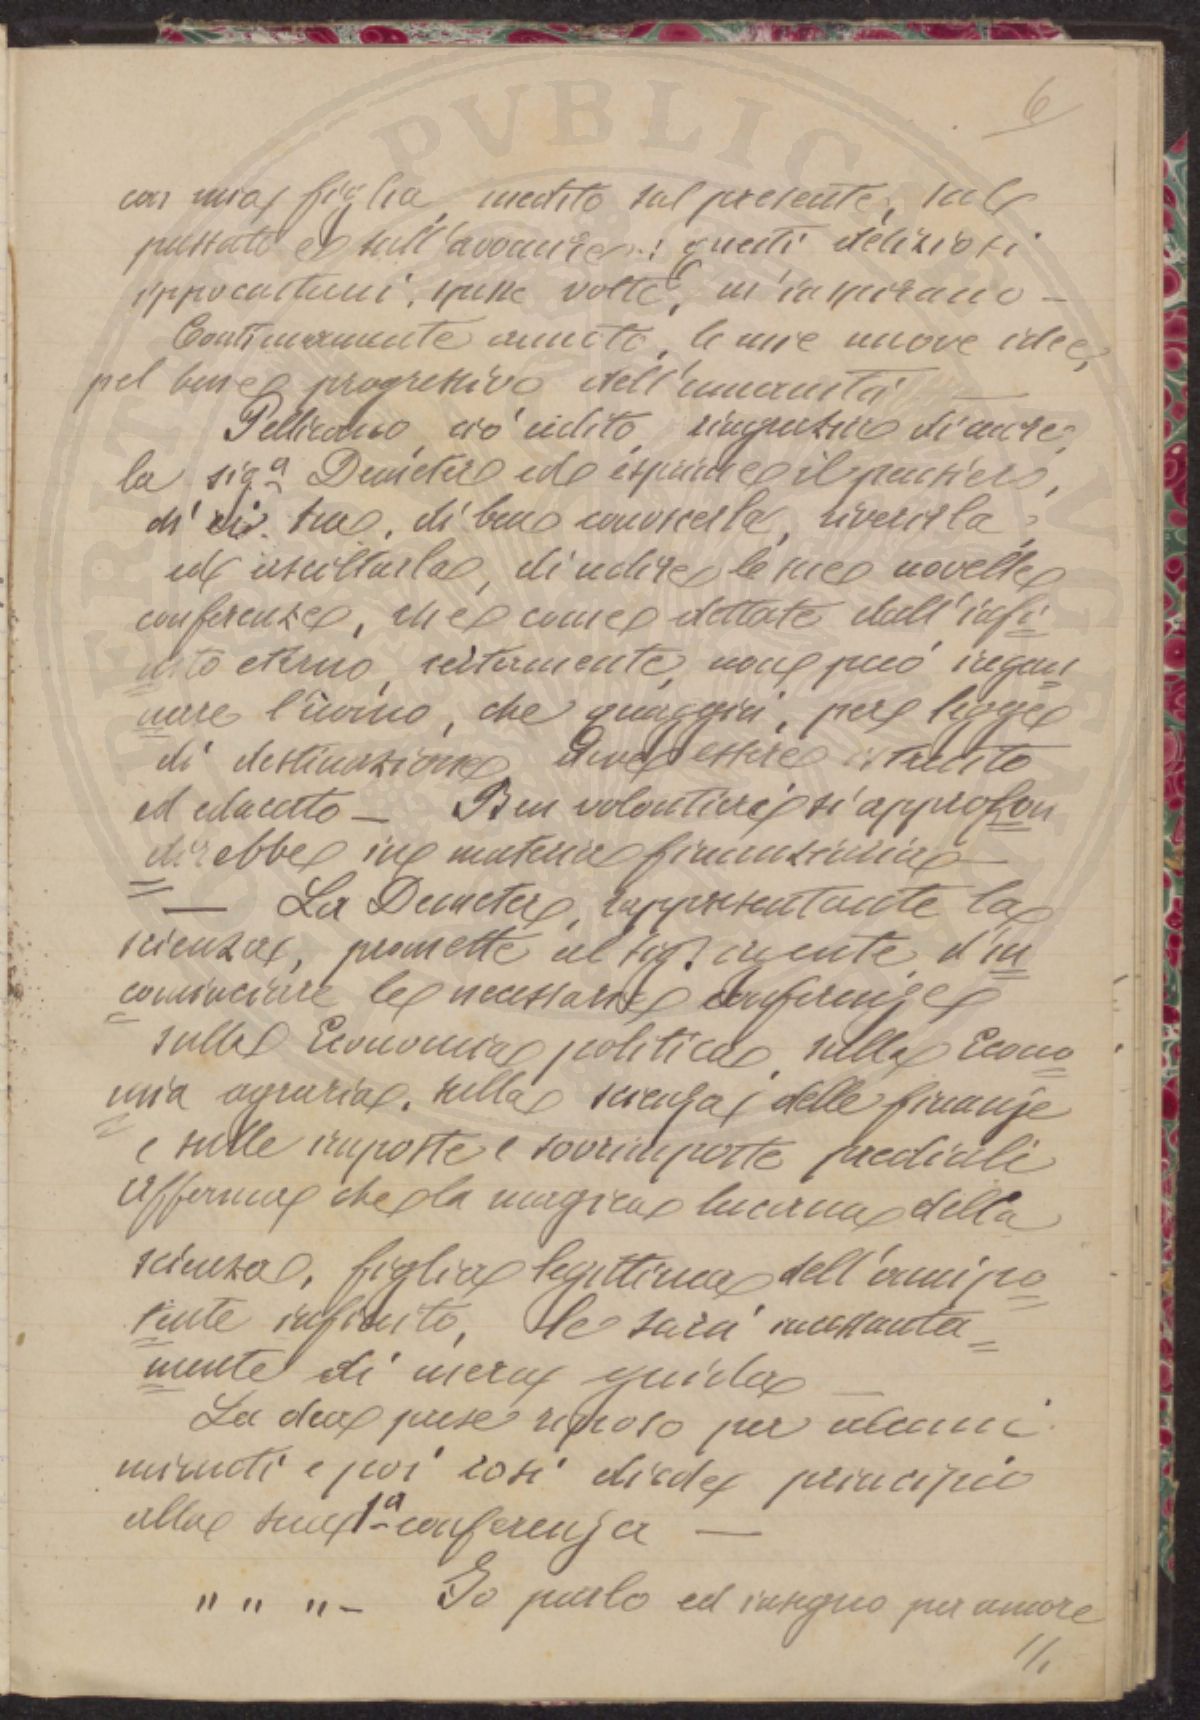 6
con mia figlia, medito sul presente, sul
passato e sull'avvenire: questi deliziosi
ippocastani, spesse volte, m'inspirano —
Continuamente annoto le mie nuove idee,
pel bene progressivo dell'umanità —
Pellicano, ciò udito, ringrazia di cuore,
la sig.a Demeter ed esprime il pensiero,
di, di ben conoscerla, riverirla,
ed ascoltarla, di udire le sue novelle
conferenze, che come dettate dall'infi
nito eterno, certamente, non può ingan
nare l'uomo, che quaggiù, per legge
di destinazione deve essere istruito
ed educato — Ben volentieri si approfon
direbbe in materia finanziaria —
— La Demeter, rappresentante la
scienza, promette al sig. agente d'in
cominciare le necessarie conferenze
sulla Economia politica, sulla Econo
mia agraria, sulla scienza delle finanze
e sulle imposte e sovrimposte prediali
Afferma che la magica lucerna della
scienza, figlia legittima dell'onnipo
tente infinito, le sarà incessante
mente di vera guida —
La dea prese riposo per alcuni
minuti e poi così diede principio
alla sua 1a conferenza —
" " " — Io parlo ed insegno per amore
//.